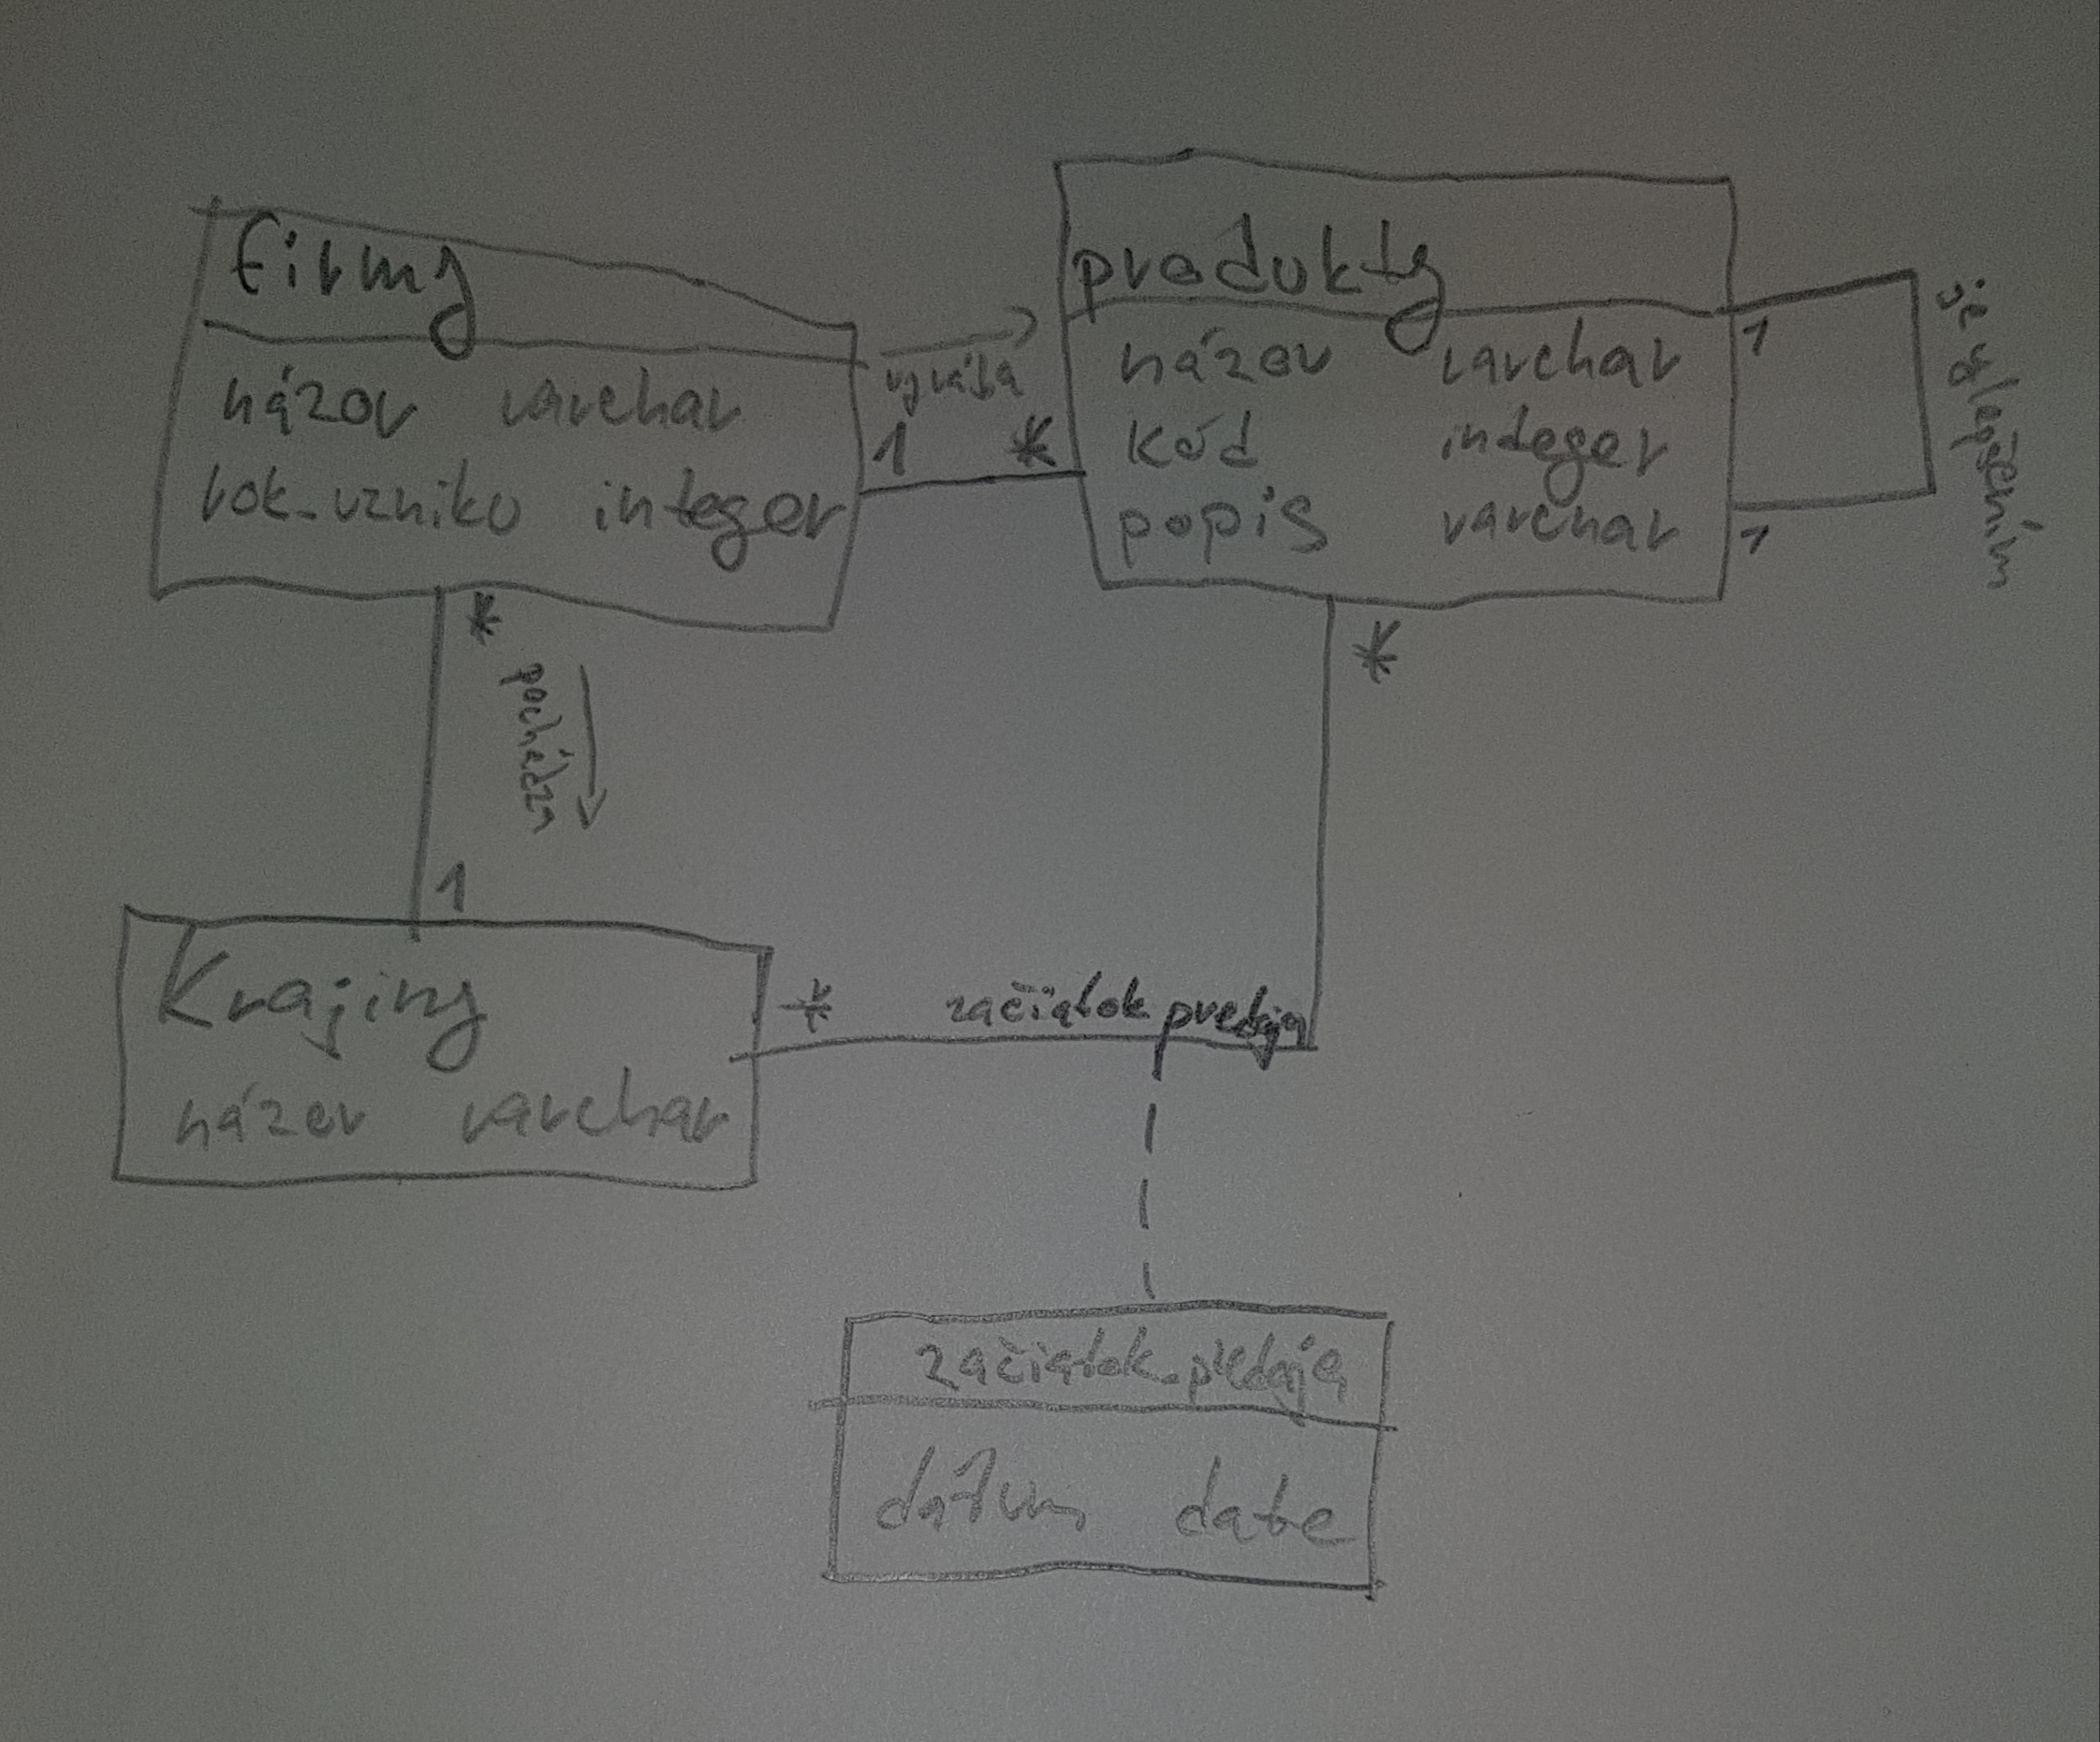 firmy
názov varchar
rok_vzniku integer
vyrába
1 *
produkty
názov varchar
kód integer
popis varchar
1
1
je vylepšením
*
pochádza
1
*
Krajiny
názov varchar
*
začiatok predaja
začiatok_predaja
dátum date